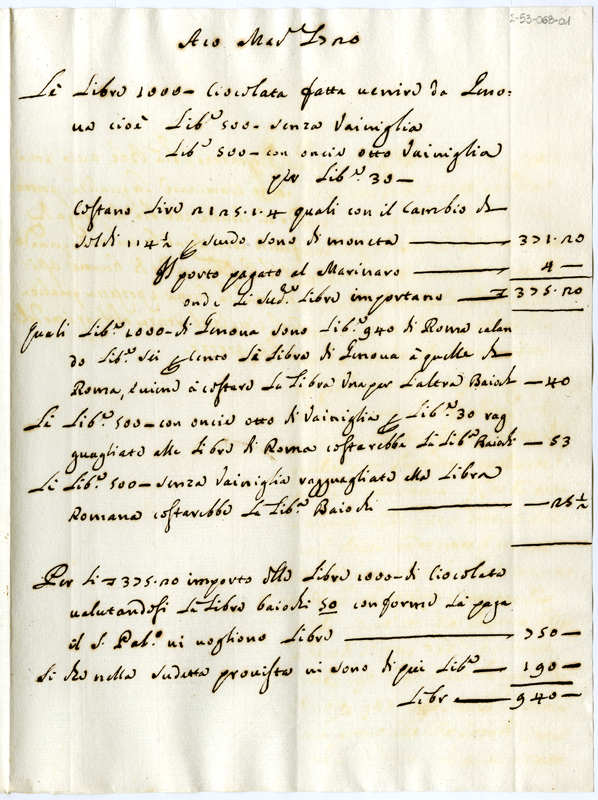 2-53-068-01
Le Libre 1000 - Ciocolata fatta venire da Geno:
va cioè Lib.e 500 - senza Vainiglia
Lib.e 500 - con oncie otto Vainiglia
per Lib.e 30 -
Costano Lire 2125.1.4 quali con il Cambio di
soldi 114 1/2 scudo sono di moneta 371.20
porto pagato al Marinaro 4 -
onde Li sud.e Libre importano 375.20
Quali Lib.e 1000 - di Genova sono Lib.e 940 di Roma calan
do Lib.e sei per Cento La Libra di Genova à quelle di
Roma, e viene à costare La Libra Una per l'altra Baiochi - 40
Le Lib.e 500 - con oncie otto di Vainiglia per Lib.e 30 rag
guagliate alle Libre di Roma costarebbe La Lib.a Baiochi - 53
Le Lib.e 500 - senza Vainiglia ragguagliate alla Libra
Romana costarebbe La Lib.a Baiochi - 28 1/2
Per Li 375.20 importo delle Libre 1000 - di Ciocolata
valutandosi La Libra baiochi 50 conforme La paga
il S. Pal.o vi vogliono Libre 750 -
Si che nella sudetta provista vi sono di più Lib.e 190 -
Libre 940 -